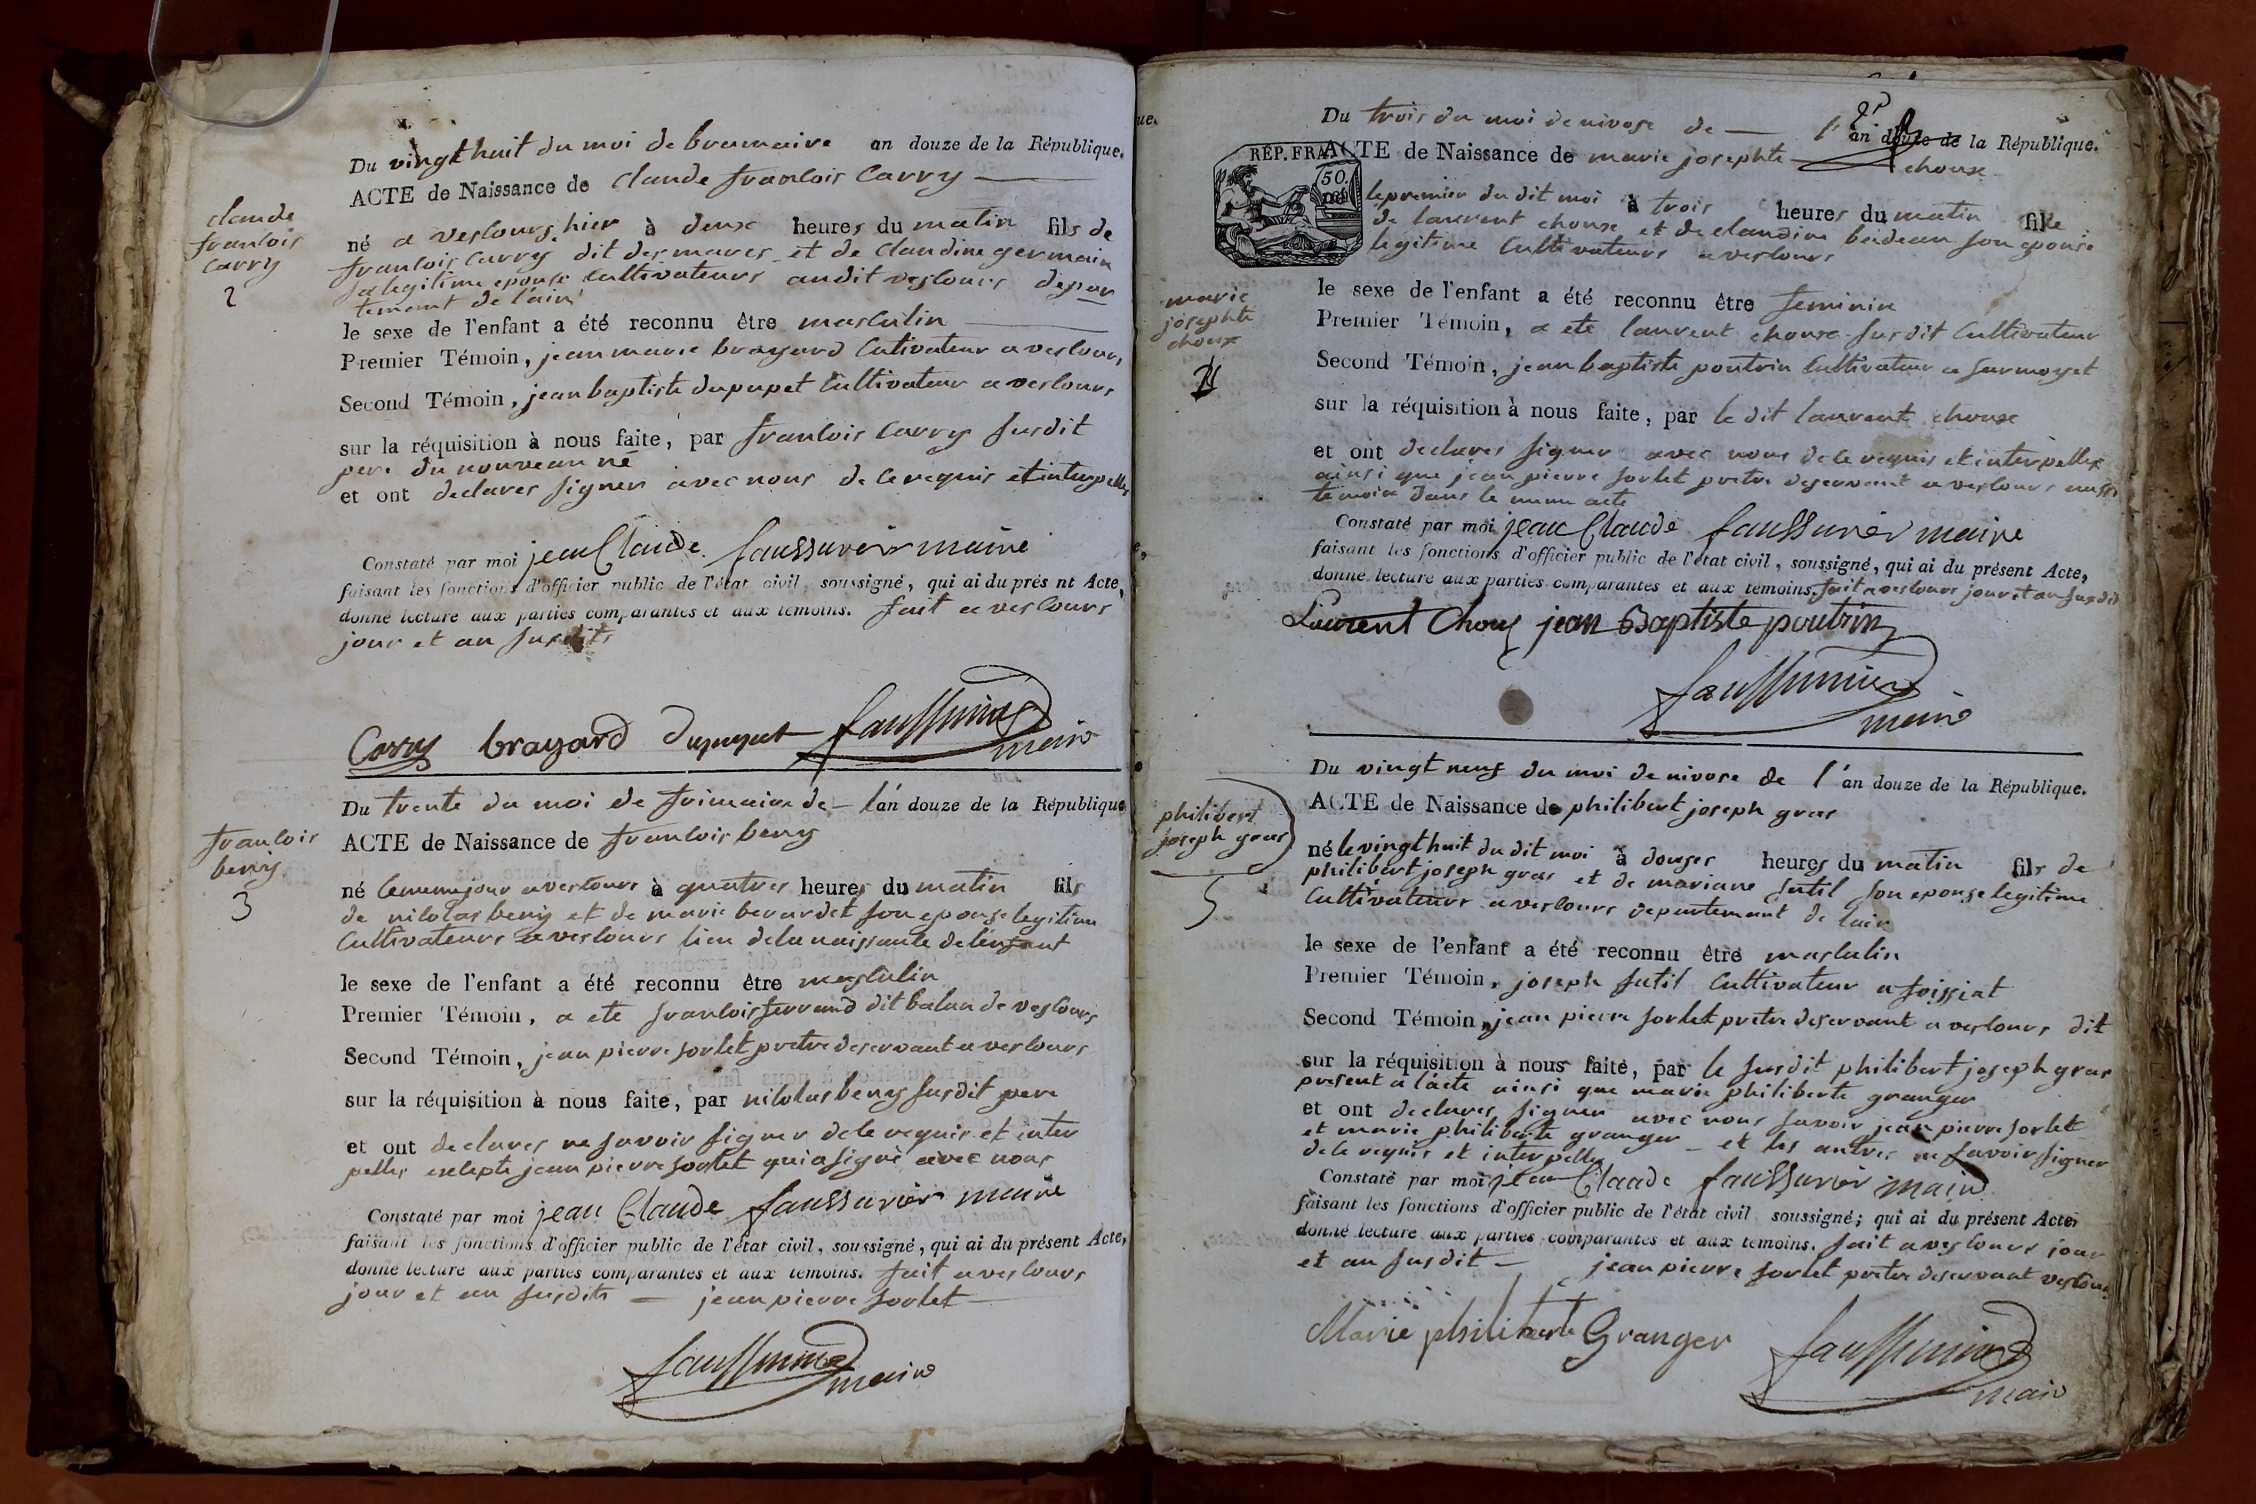 Du vingt huit du moi de brumaire an douze de la République.
ACTE de Naissance de claude franlois Carry
claude
franlois
Carry
2
né a verlours hier à deux heures du matin fils de
franlois Carry dit des mares et de Claudine germain
sa legitime epouse Cultivateurs audit verlours depar
tement de l'ain
le sexe de l'enfant a été reconnu être masculin
Premier Témoin, jean marie brayard Cutivateur a verlours
Second Témoin, jean baptiste dupupet Cultivateur a verlours
sur la réquisition à nous faite, par franlois Carry susdit
pere du nouveau né
et ont declares signer avec nous de ce requis et interpelles
Constaté par moi jean Claude faussurier maire
faisant les fonctions d'officier public de l'état civil, soussigné, qui ai du prés nt Acte,
donné lecture aux parties comparantes et aux témoins. fait a verlours
jour et an susdits
Carry brayard Dupupet faussurier
maire
Du trente du moi de frimaire de l'an douze de la République
ACTE de Naissance de franlois beny
franlois
beny
3
né le meme jour a verlours à quatres heures du matin fils
de nilolas beny et de marie berardet son epouse legitime
Cultivateurs a verlours lieu de la naissante de l'enfant
le sexe de l'enfant a été reconnu être masculin
Premier Témoin, a ete franlois ferrand dit balan de verlours
Second Témoin, jean pierre sorlet pretre deservant a verlours
sur la réquisition à nous faite, par nilolas beny susdit pere
et ont declares ne savoir signer de le requis et inter
pelles exlepte jean pierre sorlet qui a signé avec nous
Constaté par moi jean Claude faussurier maire
faisant les fonctions d'officier public de l'état civil, soussigné, qui ai du présent Acte,
donné lecture aux parties comparantes et aux témoins. fait a verlours
jour et an susdits jean pierre sorlet
faussurier
maire
Du trois du moi de nivose de l'an douze de la République.
RÉP. FRA.
50.
ACTE de Naissance de marie josephte choux
le premier du dit moi à trois heures du matin fille
de laurent choux et de claudine beideau son epouse
legitime Cultivateurs a verlours
marie
josephte
choux
le sexe de l'enfant a été reconnu être feminin
Premier Témoin, a ete laurent choux susdit Cultivateur
Second Témoin, jean baptiste poutrin Cultivateur a sarmoyet
sur la réquisition à nous faite, par le dit laurent choux
et ont declares signer avec nous de le requis et interpelles
ainsi que jean pierre sorlet pretre deservant a verlours aussi
temoin dans le meme acte
Constaté par moi jean Claude faussurier maire
faisant les fonctions d'officier public de l'état civil, soussigné, qui ai du présent Acte,
donné lecture aux parties comparantes et aux témoins. fait a verlours jour et an susdit
Laurent Choux jean Baptiste poutrin
faussurier
maire
Du vingt neuf du moi de nivose de l'an douze de la République.
ACTE de Naissance de philibert joseph gras
philibert
joseph gras
5
né le vingt huit du dit moi à douzes heures du matin fils de
philibert joseph gras et de mariane sutil son epouse legitime
Cultivateurs a verlours departement de lain
le sexe de l'enfant a été reconnu être masculin
Premier Témoin, joseph sutil Cultivateur a foissiat
Second Témoin, jean pierre sorlet pretre deservant a verlours dit
sur la réquisition à nous faite, par le susdit philibert joseph gras
present a l'acte ainsi que marie philiberte granger
et ont declares signer avec nous savoir jean pierre sorlet
et marie philiberte granger et les autres ne savoir signer
de le requis et interpelles
Constaté par moi jean Claude faussurier maire
faisant les fonctions d'officier public de l'état civil, soussigné; qui ai du présent Acte,
donné lecture aux parties comparantes et aux témoins. fait a verlours jour
et an susdit jean pierre sorlet pretre deservant verlours
Marie philiberte Granger faussurier
maire